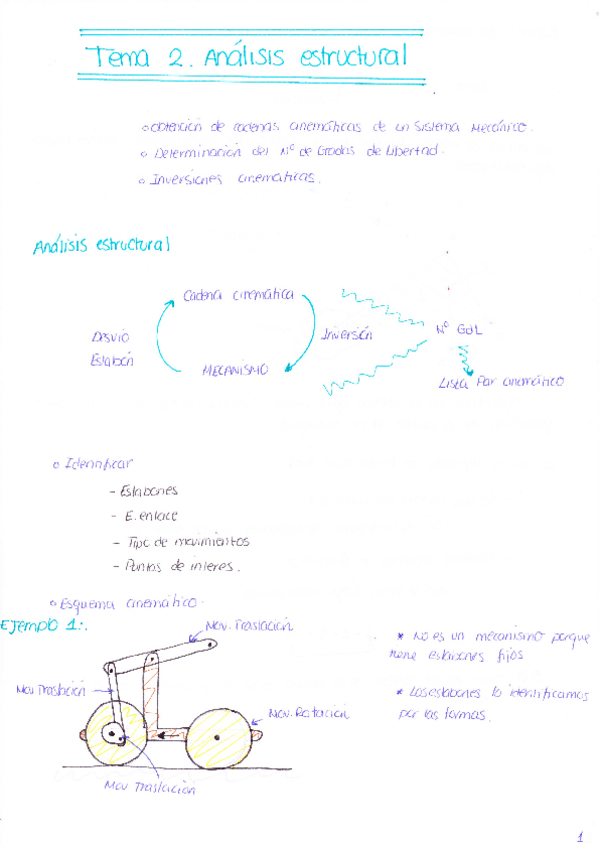 Tema 2. Análisis estructural
Obtención de cadenas cinemáticas de un Sistema Mecánico.
Determinación del Nº de Grados de Libertad.
Inversiones cinemáticas.
Análisis estructural
Cadena cinemática
Desvio
Eslabón
Inversión
Nº GdL
MECANISMO
Lista Par cinemático
Identificar
- Eslabones
- E. enlace
- Tipo de movimientos
- Puntos de interes.
Esquema cinemático.
Ejemplo 1:.
Mov. Traslación
* No es un mecanismo porque
tiene eslabones fijos
Mov Traslación
* Los eslabones lo identificamos
por las formas.
Mov. Rotación
Mov Traslación
1